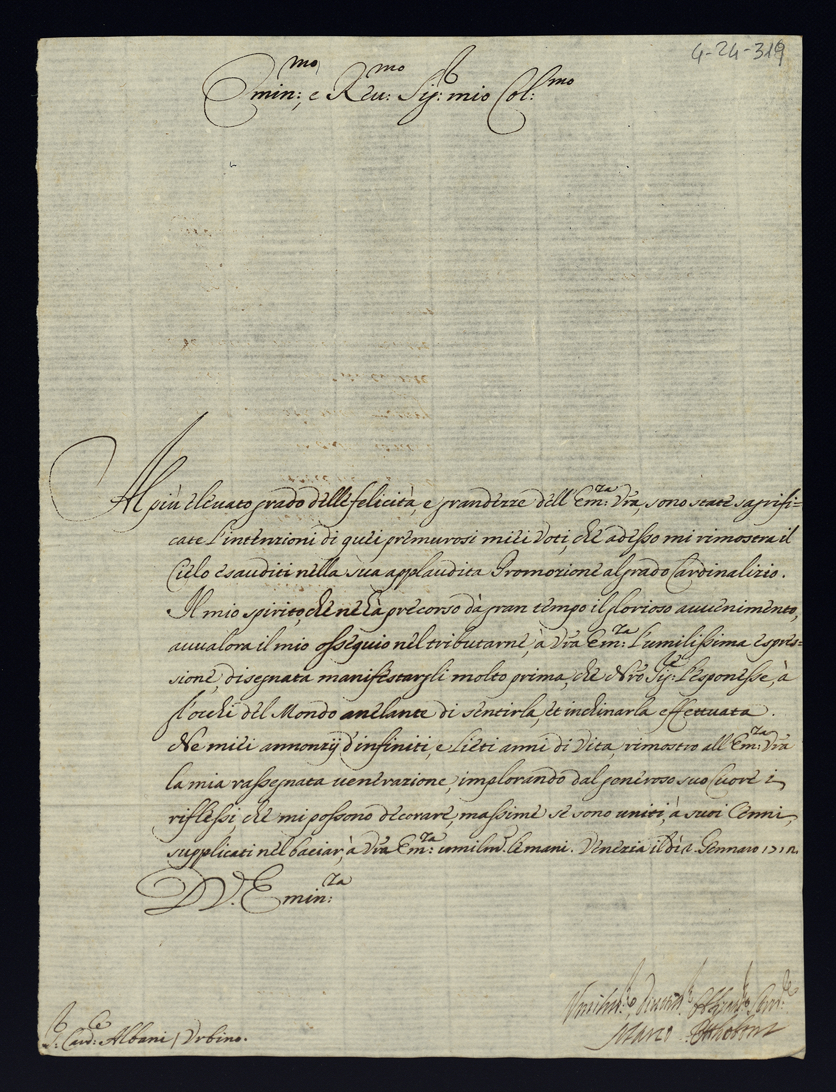 4-24-319
Emin:mo, e Reu:mo Sig:r mio Col:mo
Al più eleuato grado delle felicità, e grandezze dell'Em:za Vra, sono state sagrifi=
cate l'intenzioni di quei premurosi miei Voti, che adesso mi rimostra il
Cielo esauditi nella sua applaudita Promozione al grado Cardinalizio.
Il mio spirito, che ne hà precorso dà gran tempo il glorioso auuenimento,
auualora il mio ossequio nel tributarne, à Vra Em:za l'umilissima espres=
sione, disegnata manifestargli molto prima, che Nro Sig:re l'esponesse, à
gl'occhi del Mondo anelante di sentirla, et inchinarla effettuata.
Ne miei annonzij d'infiniti, e lieti anni di Vita rimostro all'Em:za Vra
la mia rassegnata uenerazione, implorando dal generoso suo Cuore i
riflessi che mi possono decorare, massime se sono uniti, à suoi Cenni,
supplicati nel baciar, à Vra Em:za umilm:te le mani. Venezia il dì Gennaro 1712.
D V. Emin:za
S.r Card:le Albani / Urbino.
Marco Otthoboni